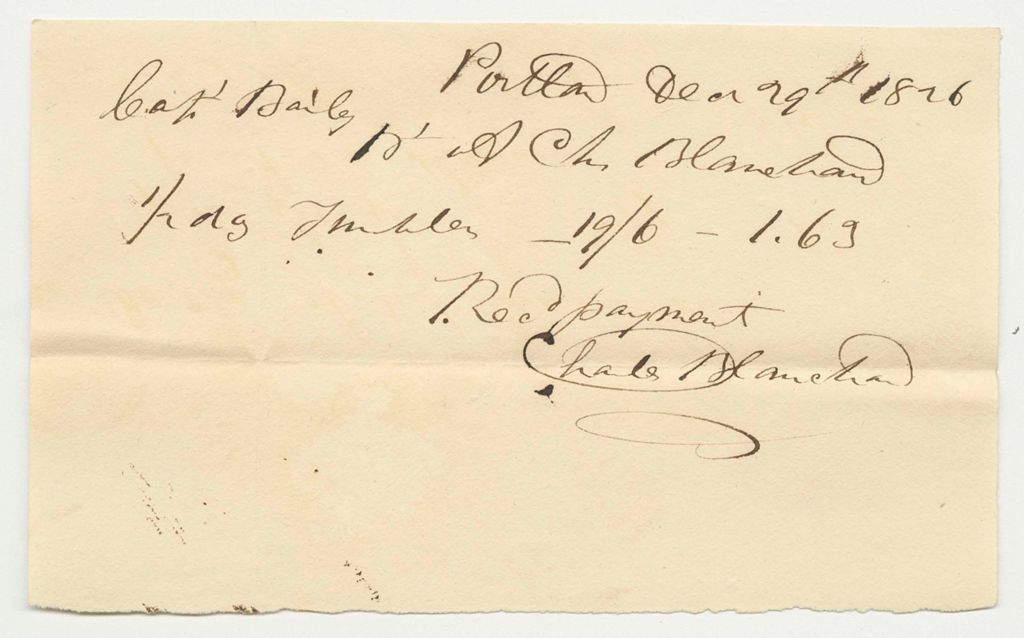 Portland Dec 29th 1826
Capt Baily
Dr to Chs Blanchard
1/2 dog Tumblers - 19/6 - 1.63
Rec'd payment
Charles Blanchard